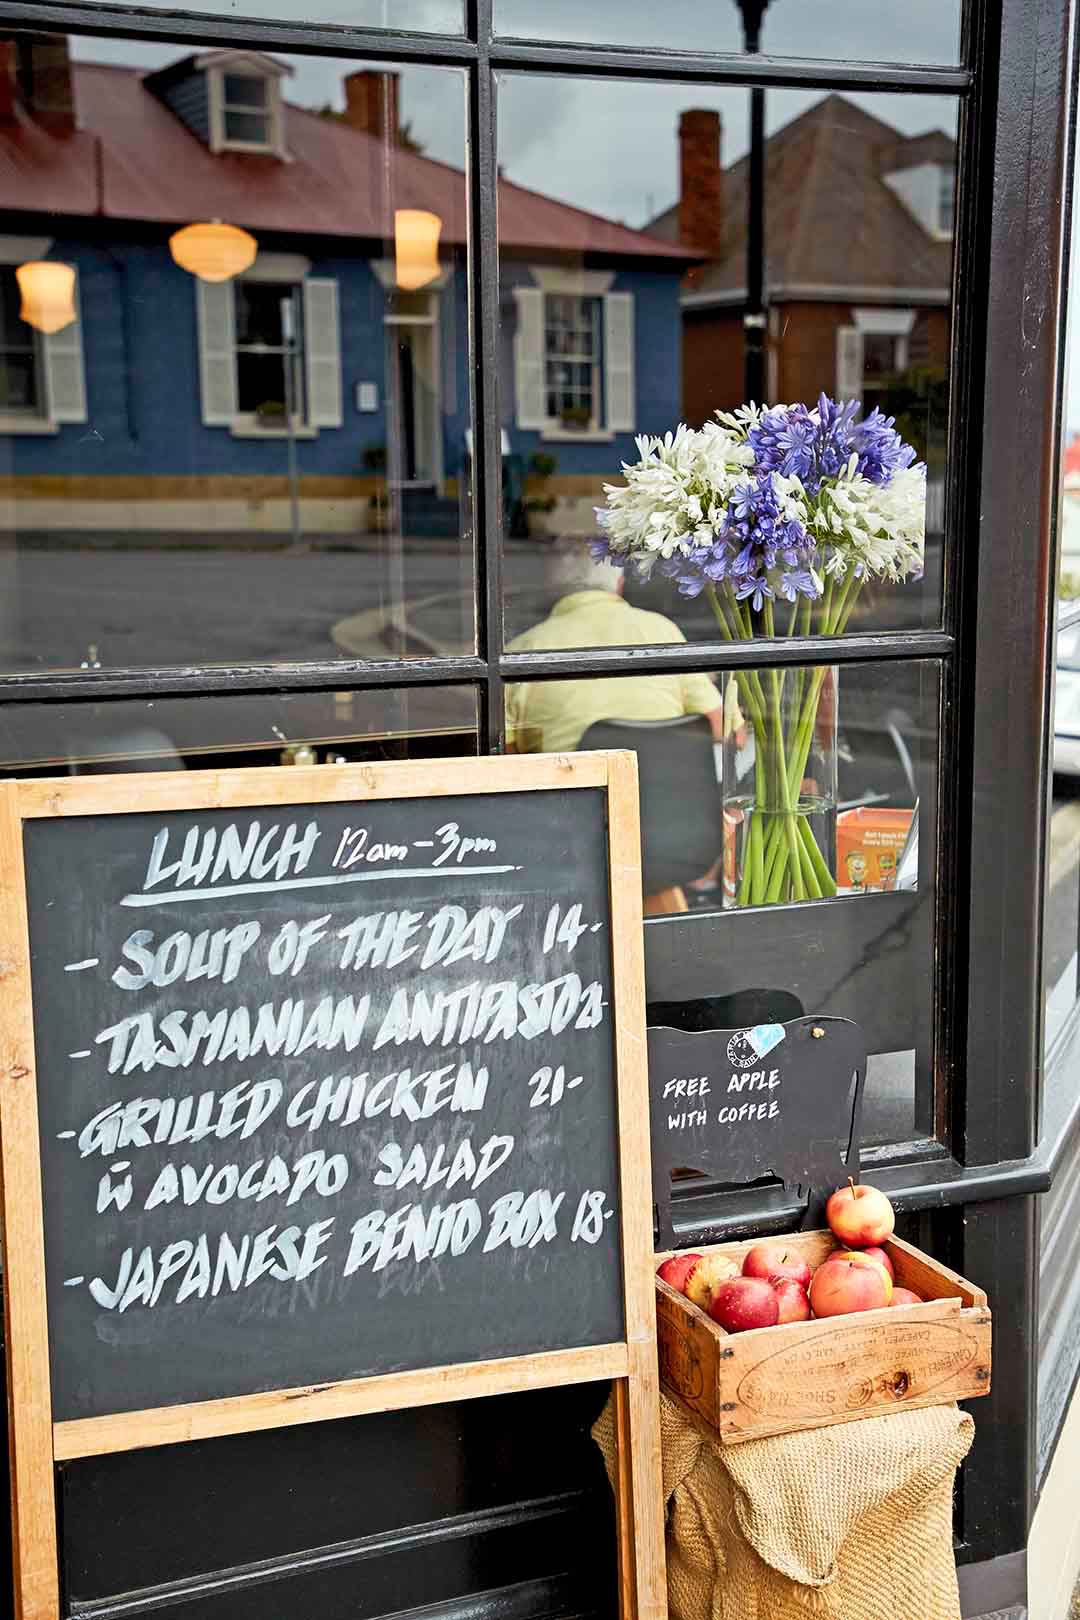 LUNCH 12am-3pm
- SOUP OF THE DAY 14-
- TASMANIAN ANTIPASTO 21-
- GRILLED CHICKEN 21-
W̄ AVOCADO SALAD
- JAPANESE BENTO BOX 18-
FREE APPLE
WITH COFFEE